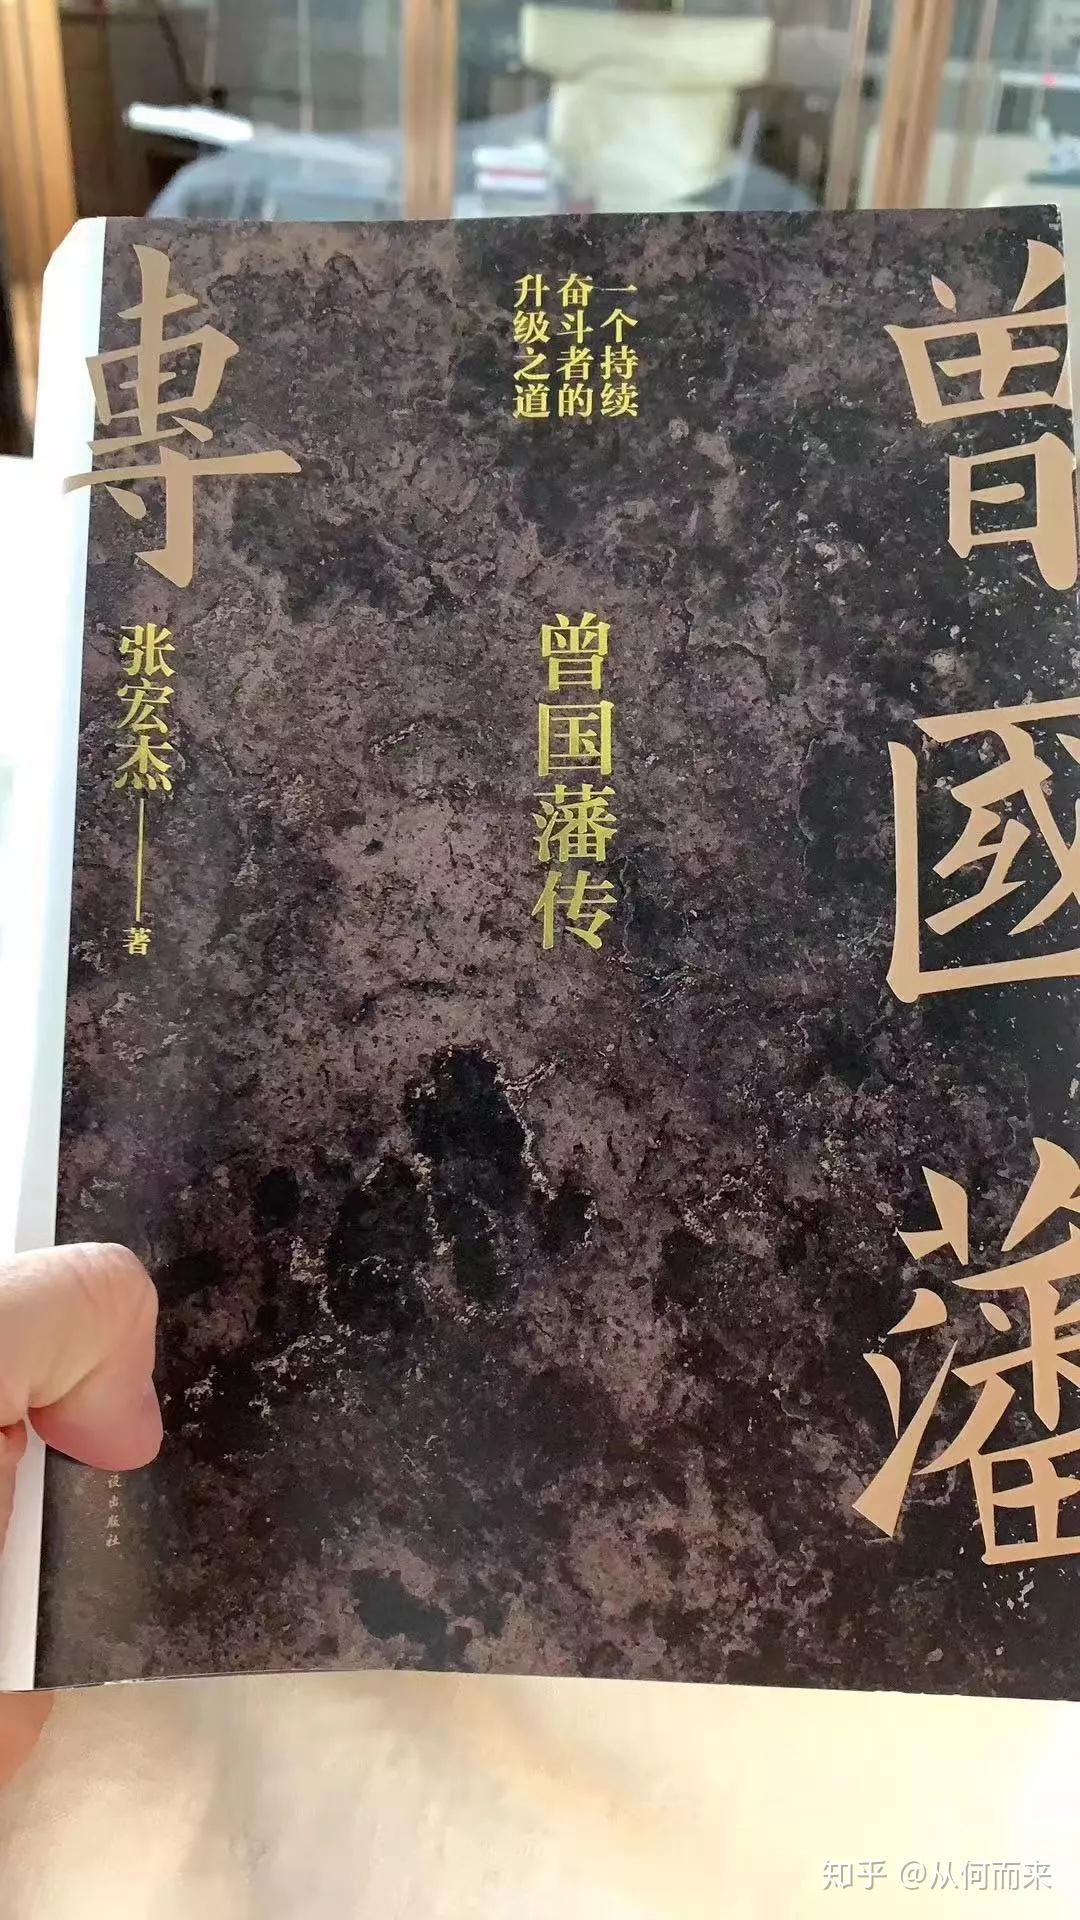 曾國藩
專
一个持续
奋斗者的
升级之道
曾国藩传
张宏杰——著
出版社
知乎 @从何而来